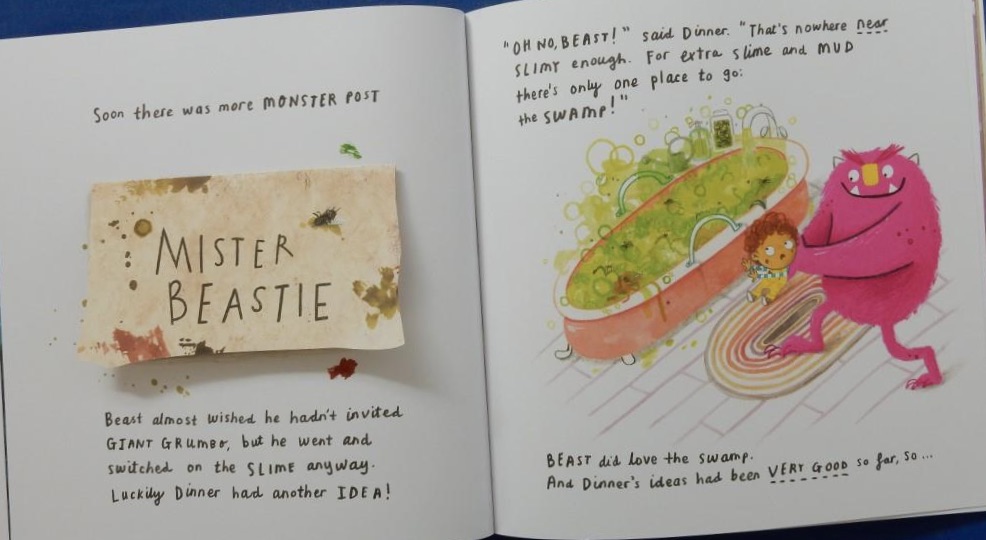 Soon there was more MONSTER POST
MISTER
BEASTIE
Beast almost wished he hadn't invited
GIANT GRUMBO, but he went and
switched on the SLIME anyway.
Luckily Dinner had another IDEA!
"OH NO, BEAST!" said Dinner. "That's nowhere near
SLIMY enough. For extra slime and MUD
there's only one place to go:
the SWAMP!"
BEAST did love the swamp.
And Dinner's ideas had been VERY GOOD so far, so...